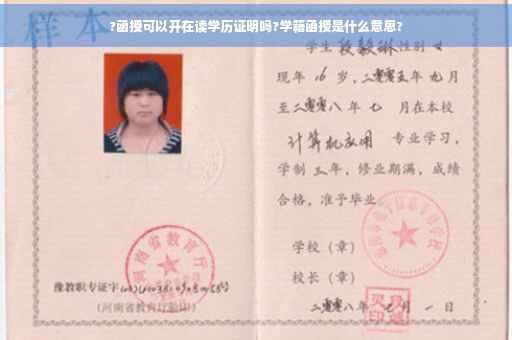 ?函授可以开在读学历证明吗?学籍函授是什么意思?
样本
学生段毅琳性别女
现年16岁，二零零五年九月
至二零零八年七月在本校
计算机应用 专业学习，
学制三年，修业期满，成绩
合格，准予毕业。
学校（章）
校长（章）
二零零八年 月一日
河南省教育厅
豫教职专证字
（河南省教育厅验印）